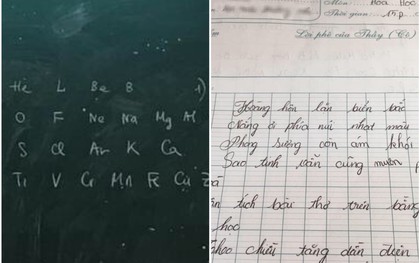 He L Be B 1)
O F Ne Na Mg Al
S Cl Ar K Ca
Ti V Cr Mn
Môn: Hóa Học
Thời gian: 15p
Lời phê của Thầy (Cô)
Hoàng hôn lấn biển bắc
Nắng ở phía núi nhạt màu
Phong sương còn ám khói
Sao tinh vẫn cũng muôn
tích bầu thơ trên bằng
học
theo chiều tăng dần điện